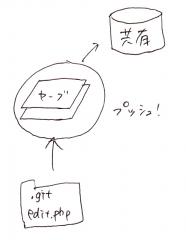 共有
セーブ
プッシュ!
.git
edit.php